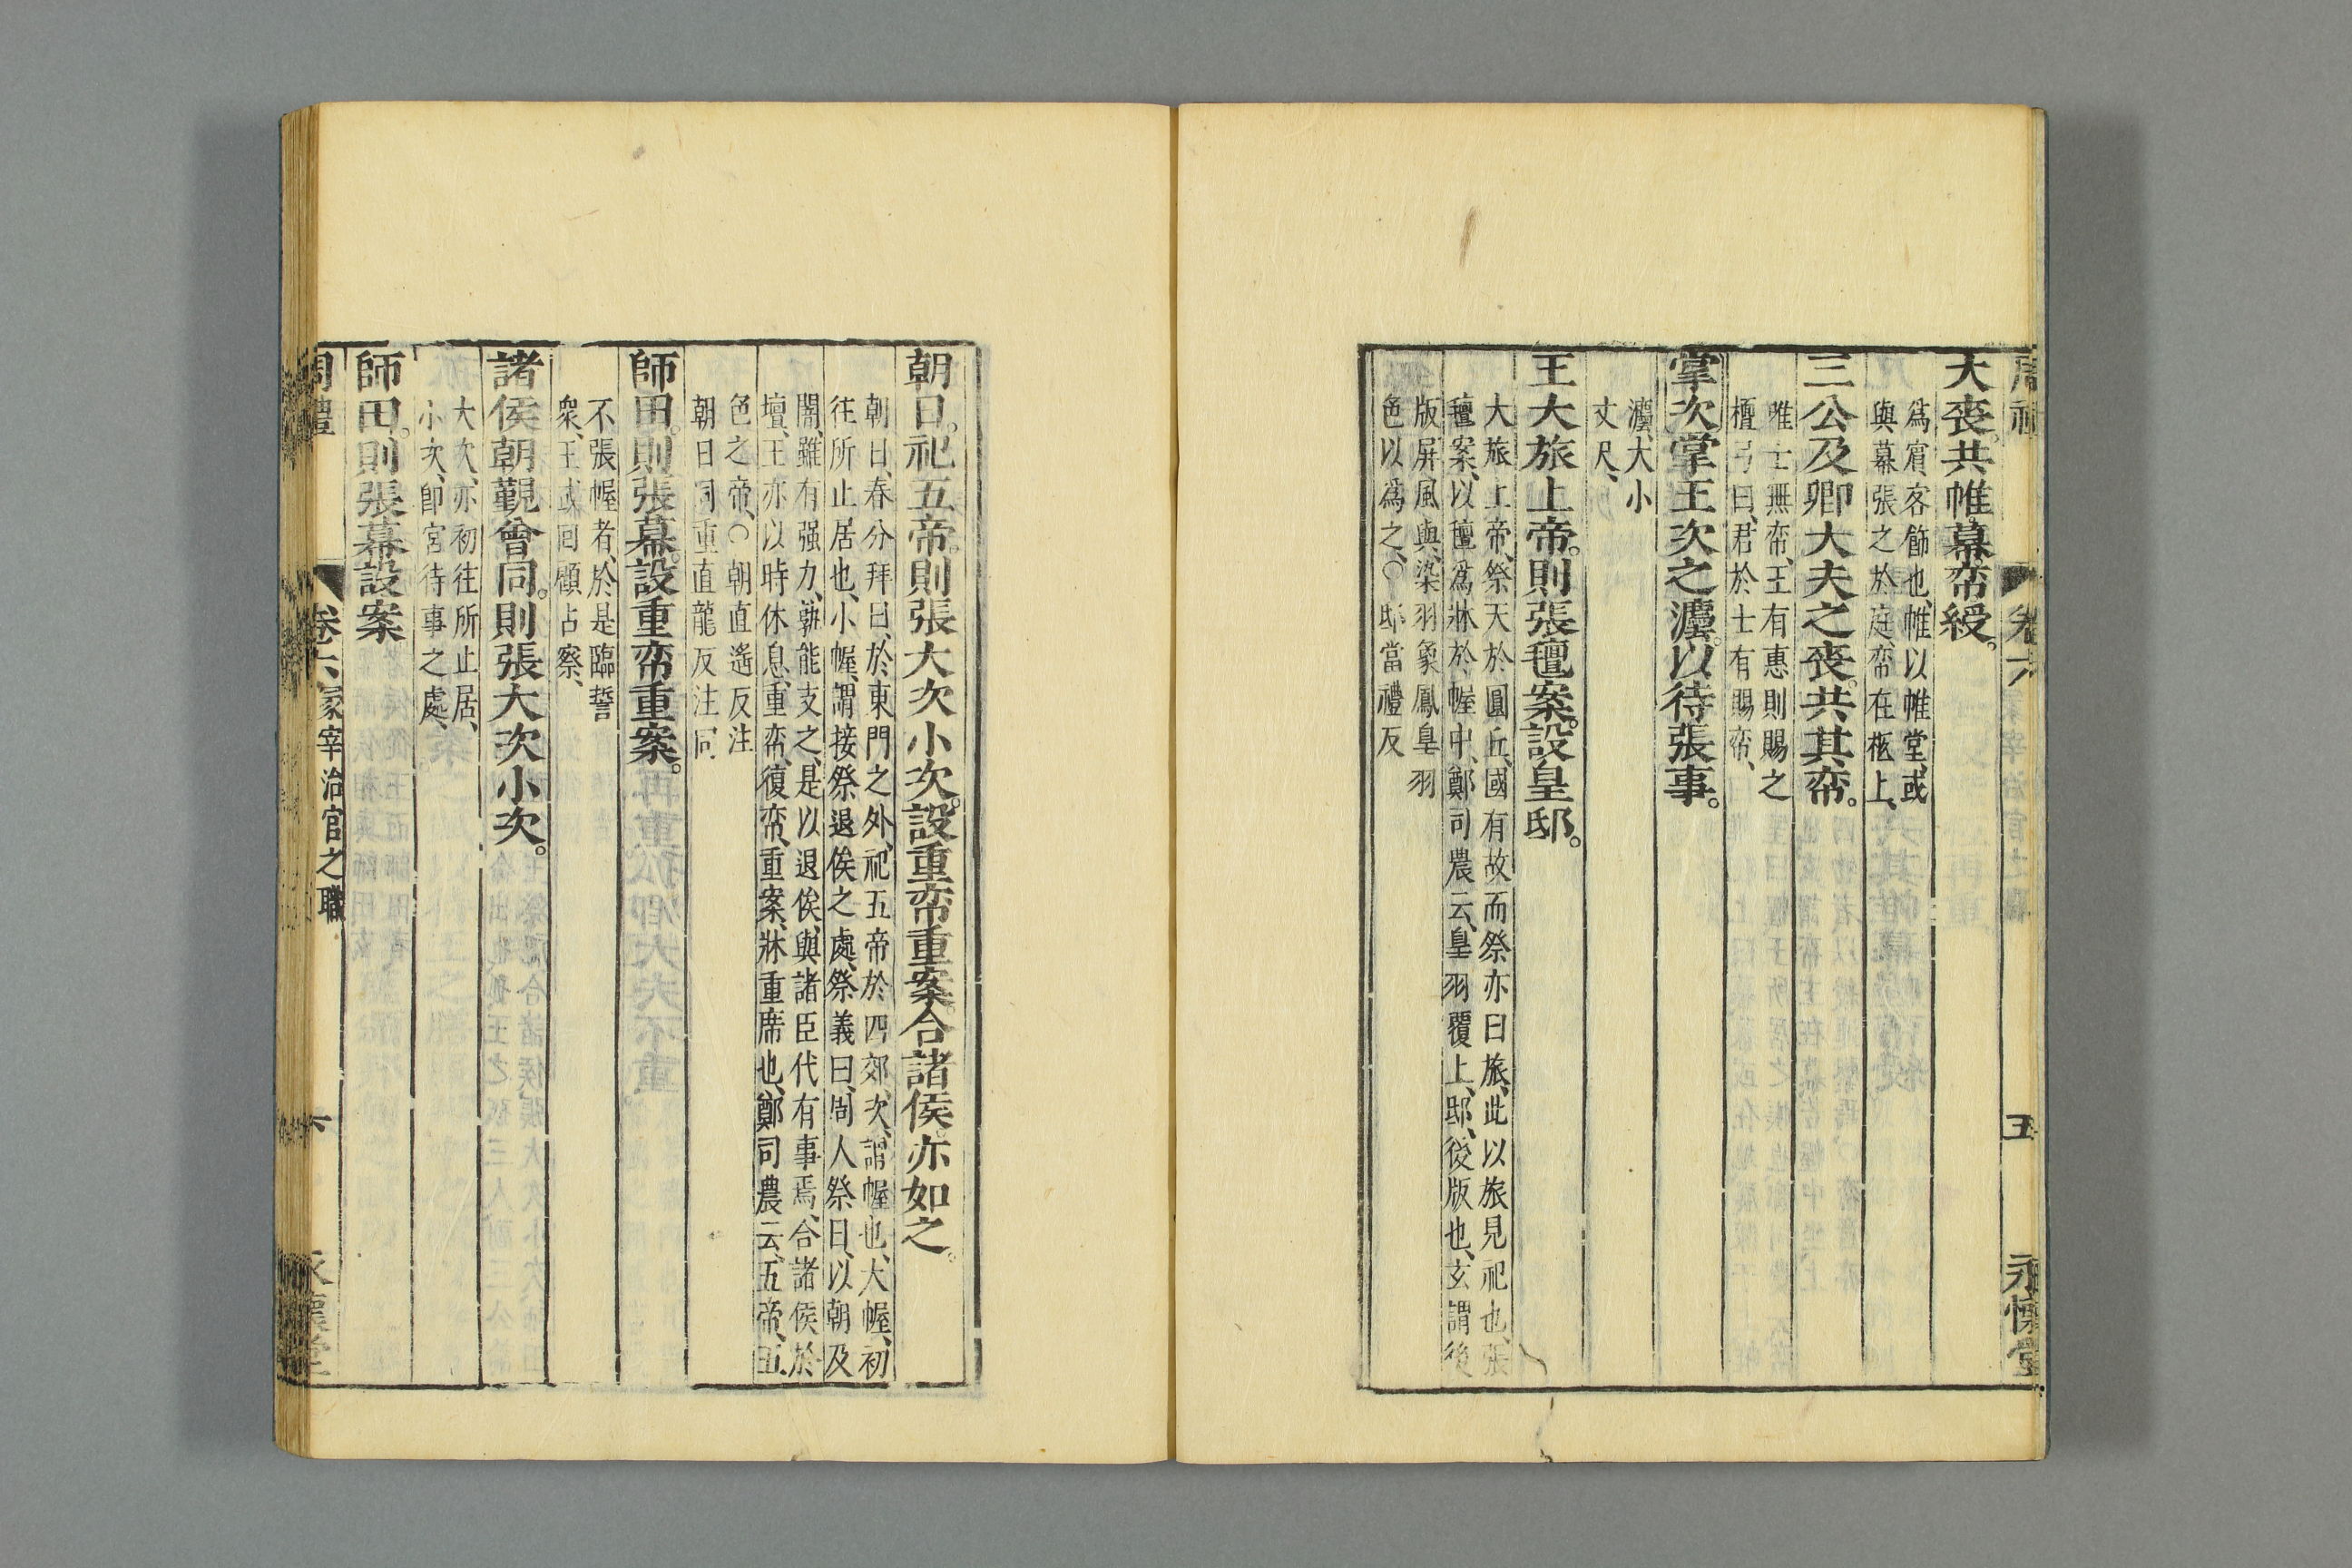 大喪。共帷。幕帟綬。
為賔、客飾也、帷以帷堂、或
與幕張之於庭、帟在柩上、
三公及卿大夫之喪。共其帟。
唯士無帟、王有惠則賜之
檀弓曰、君於士有賜帟、
掌次掌王次之灋。以待張事。
灋、大小
丈尺、
王大旅上帝。則張氊案。設皇邸。
大旅上帝、祭天於圓丘、國有故而祭亦曰旅、此以旅見祀也、張
氊案、以氊為牀於幄中、鄭司農云、皇羽覆上、邸、後版也、玄謂後
版屏風與、染羽象鳳皇羽
色以為之、○邸當禮反
五
永懷堂
朝日。祀五帝。則張大次小次。設重帟重案。合諸侯。亦如之。
朝日、春分拜日、於東門之外、祀五帝於四郊、次、謂幄也、大幄、初
往所止居也、小幄、謂接祭退俟之處、祭義曰、周人祭日、以朝及
闇、雖有强力、孰能支之、是以退俟、與諸臣代有事焉、合諸侯於
壇、王亦以時休息、重帟、復帟、重案、牀重席也、鄭司農云、五帝、五
色之帝、○朝直遙反注
朝日同重直龍反注同
師田。則張幕。設重帟重案。
不張幄者、於是臨誓
衆、王或回顧占察、
諸侯朝覲會同。則張大次小次。
大次、亦初往所止居、
小次、卽宮待事之處、
師田。則張幕設案
周禮
卷六 冢宰治官之職
六
永懷堂